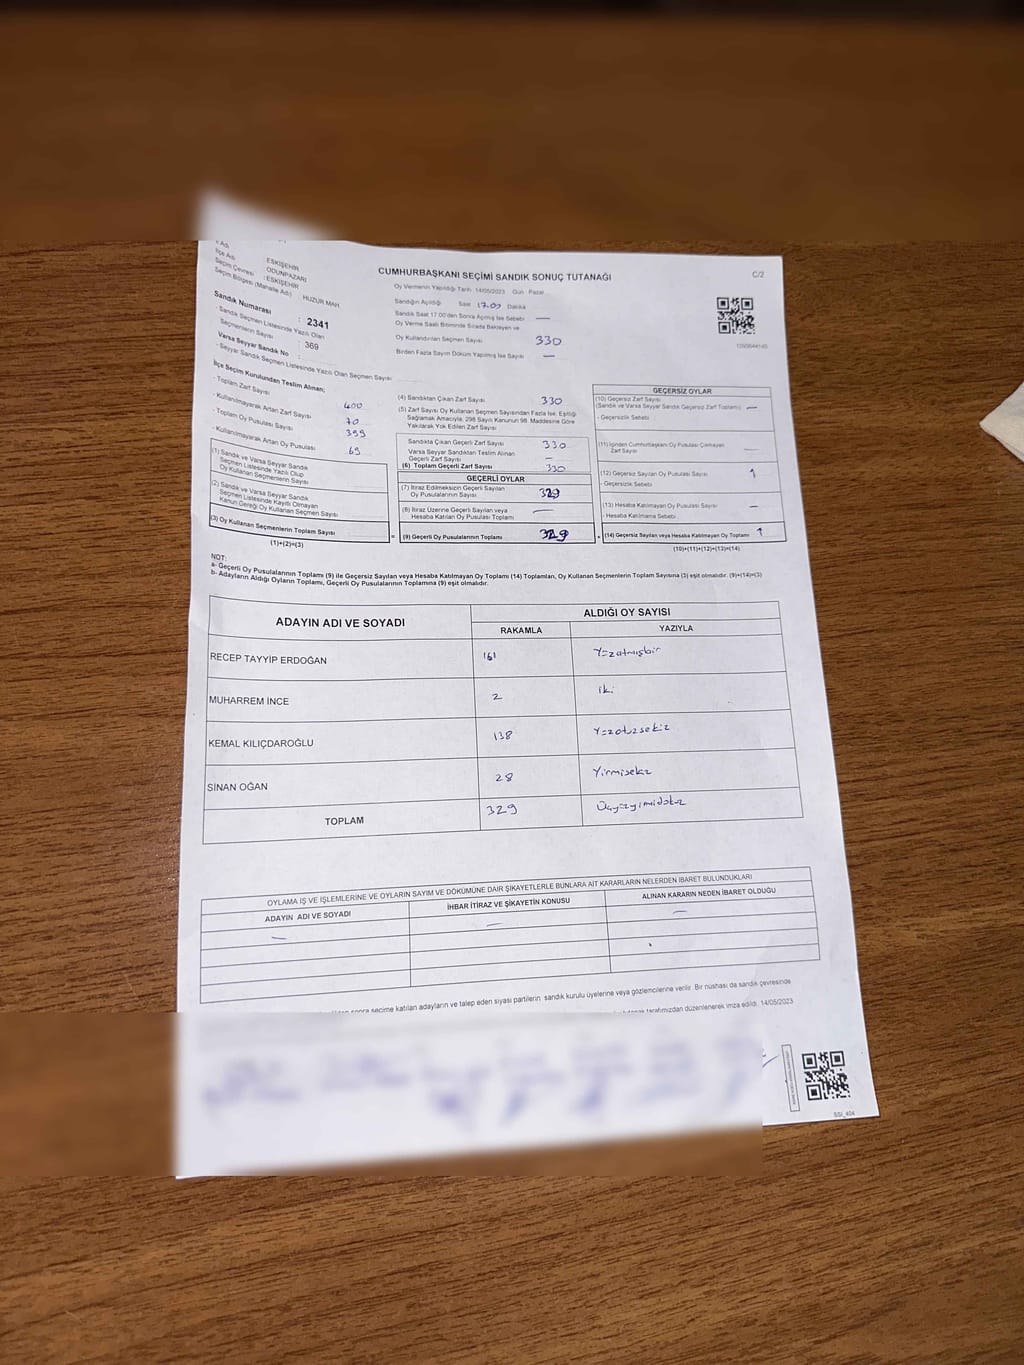 İlçe Adı : ESKİŞEHİR
Seçim Çevresi : ODUNPAZARI
Seçim Bölgesi (Mahalle Adı) : ESKİŞEHİR
HUZUR MAH.
CUMHURBAŞKANI SEÇİMİ SANDIK SONUÇ TUTANAĞI
C/2
Oy Vermenin Yapıldığı Tarih 14/05/2023 Gün : Pazar
Sandığın Açıldığı Saat 17.00 Dakika
Sandık Saat 17.00'den Sonra Açılmış İse Sebebi —
Oy Verme Saati Bitiminde Sırada Bekleyen ve
Oy Kullandırılan Seçmen Sayısı 330
Birden Fazla Sayım Döküm Yapılmış İse Sayısı —
Sandık Numarası : 2341
- Sandık Seçmen Listesinde Yazılı Olan
Seçmenlerin Sayısı : 369
Varsa Seyyar Sandık No :
- Seyyar Sandık Seçmen Listesinde Yazılı Olan Seçmen Sayısı
İlçe Seçim Kurulundan Teslim Alınan;
- Toplam Zarf Sayısı 400
- Kullanılmayarak Artan Zarf Sayısı 70
- Toplam Oy Pusulası Sayısı 399
- Kullanılmayarak Artan Oy Pusulası 69
(1) Sandık ve Varsa Seyyar Sandık
Seçmen Listesinde Yazılı Olup
Oy Kullanan Seçmenlerin Sayısı
(2) Sandık ve Varsa Seyyar Sandık
Seçmen Listesinde Kayıtlı Olmayan
Kanun Gereği Oy Kullanan Seçmen Sayısı
(3) Oy Kullanan Seçmenlerin Toplam Sayısı
(1)+(2)=(3)
(4) Sandıktan Çıkan Zarf Sayısı 330
(5) Zarf Sayısı Oy Kullanan Seçmen Sayısından Fazla İse, Eşitliği
Sağlamak Amacıyla, 298 Sayılı Kanunun 98. Maddesine Göre
Yakılarak Yok Edilen Zarf Sayısı
Sandıkta Çıkan Geçerli Zarf Sayısı 330
Varsa Seyyar Sandıktan Teslim Alınan
Geçerli Zarf Sayısı —
(6) Toplam Geçerli Zarf Sayısı 330
GEÇERLİ OYLAR
(7) İtiraz Edilmeksizin Geçerli Sayılan
Oy Pusulalarının Sayısı 329
(8) İtiraz Üzerine Geçerli Sayılan veya
Hesaba Katılan Oy Pusulası Toplamı —
= (9) Geçerli Oy Pusulalarının Toplamı 329
GEÇERSİZ OYLAR
(10) Geçersiz Zarf Sayısı
(Sandık ve Varsa Seyyar Sandık Geçersiz Zarf Toplamı) —
- Geçersizlik Sebebi
(11) İçinden Cumhurbaşkanı Oy Pusulası Çıkmayan
Zarf Sayısı —
(12) Geçersiz Sayılan Oy Pusulası Sayısı 1
- Geçersizlik Sebebi
(13) Hesaba Katılmayan Oy Pusulası Sayısı —
- Hesaba Katılmama Sebebi
+ (14) Geçersiz Sayılan veya Hesaba Katılmayan Oy Toplamı 1
(10)+(11)+(12)+(13)=(14)
NOT:
a- Geçerli Oy Pusulalarının Toplamı (9) ile Geçersiz Sayılan veya Hesaba Katılmayan Oy Toplamı (14) Toplamları, Oy Kullanan Seçmenlerin Toplam Sayısına (3) eşit olmalıdır. (9)+(14)=(3)
b- Adayların Aldığı Oyların Toplamı, Geçerli Oy Pusulalarının Toplamına (9) eşit olmalıdır.
ADAYIN ADI VE SOYADI
ALDIĞI OY SAYISI
RAKAMLA YAZIYLA
RECEP TAYYİP ERDOĞAN 161 Yüzatmışbir
MUHARREM İNCE 2 iki
KEMAL KILIÇDAROĞLU 138 Yüzotuzsekiz
SİNAN OĞAN 28 Yirmisekiz
TOPLAM 329 Üçyüzyirmidokuz
OYLAMA İŞ VE İŞLEMLERİNE VE OYLARIN SAYIM VE DÖKÜMÜNE DAİR ŞİKAYETLERLE BUNLARA AİT KARARLARIN NELERDEN İBARET BULUNDUKLARI
ADAYIN ADI VE SOYADI İHBAR İTİRAZ VE ŞİKAYETİN KONUSU ALINAN KARARIN NEDEN İBARET OLDUĞU
— — —
sonra seçime katılan adayların ve talep eden siyasi partilerin sandık kurulu üyelerine veya gözlemcilerine verilir. Bir nüshası da sandık çevresinde
tarafımızdan düzenlenerek imza edildi. 14/05/2023
SSI_404